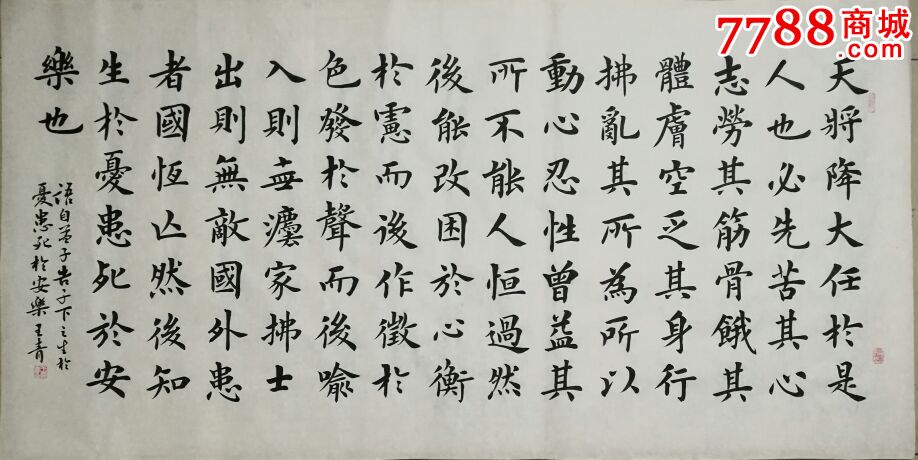 7788商城
.com
天將降大任於是
人也必先苦其心
志勞其筋骨餓其
體膚空乏其身行
拂亂其所為所以
動心忍性曾益其
所不能人恒過然
後能改困於心衡
於慮而後作徵於
色發於聲而後喻
入則無灋家拂士
出則無敵國外患
者國恆亡然後知
生於憂患死於安
樂也
語自孟子告子下之生於
憂患死於安樂 王青